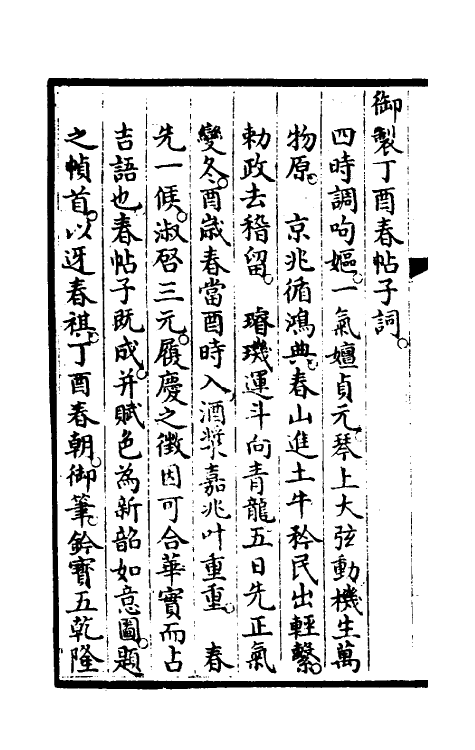 御製丁酉春帖子詞
四時調呴嫗一氣嬗貞元琴上大弦動機生萬
物原　京兆循鴻典春山進土牛矜民出輕繫
勅政去稽留　璿璣運斗向青龍五日先正氣
變冬酉歲春當酉時入酒漿嘉兆叶重重　春
先一候淑啓三元履慶之徵因可合華實而占
吉語也春帖子既成并賦色為新韶如意圖題
之幀首以迓春祺丁酉春朝御筆鈐寳五乾隆